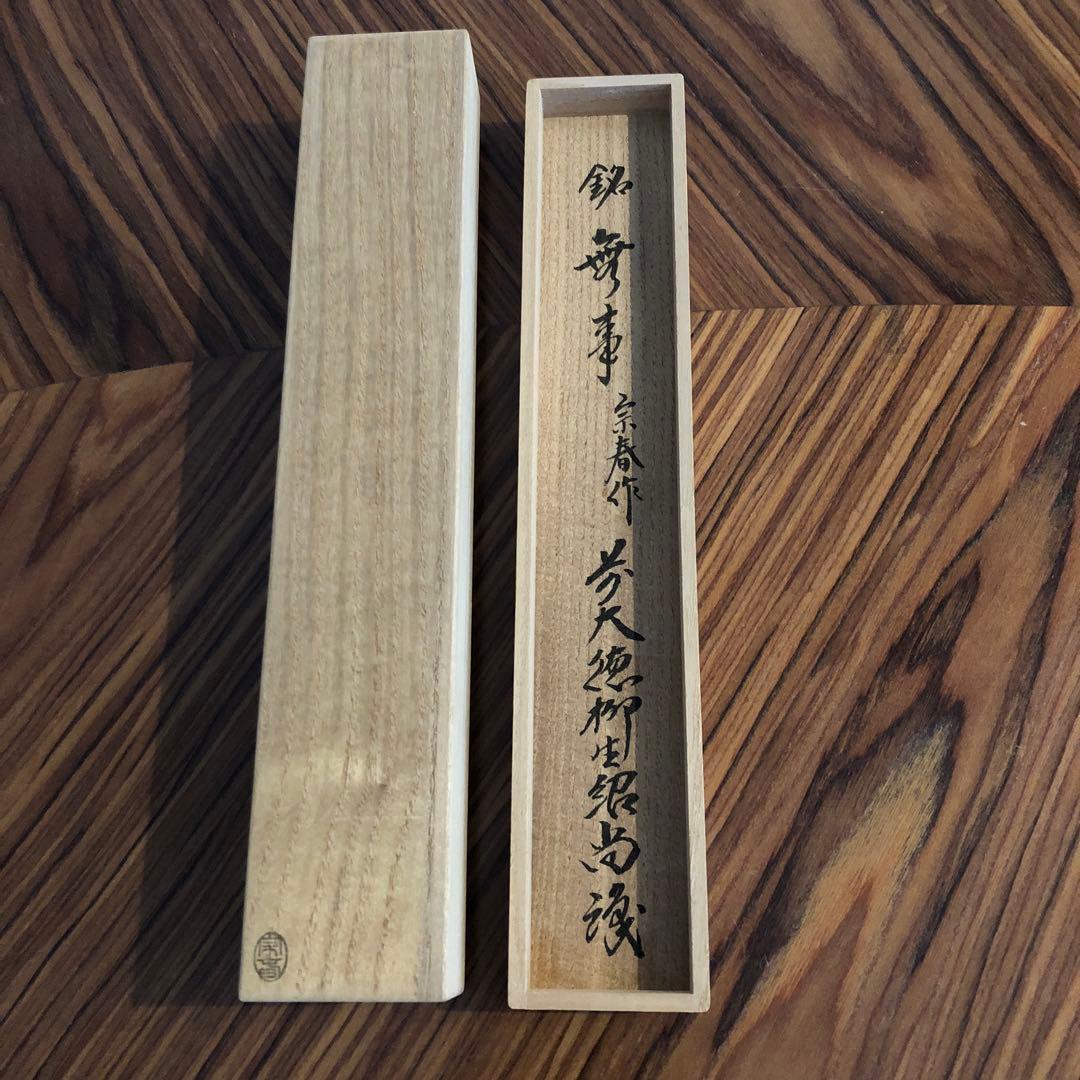 銘 無事 宗春作 前大徳柳生紹尚識
宗春